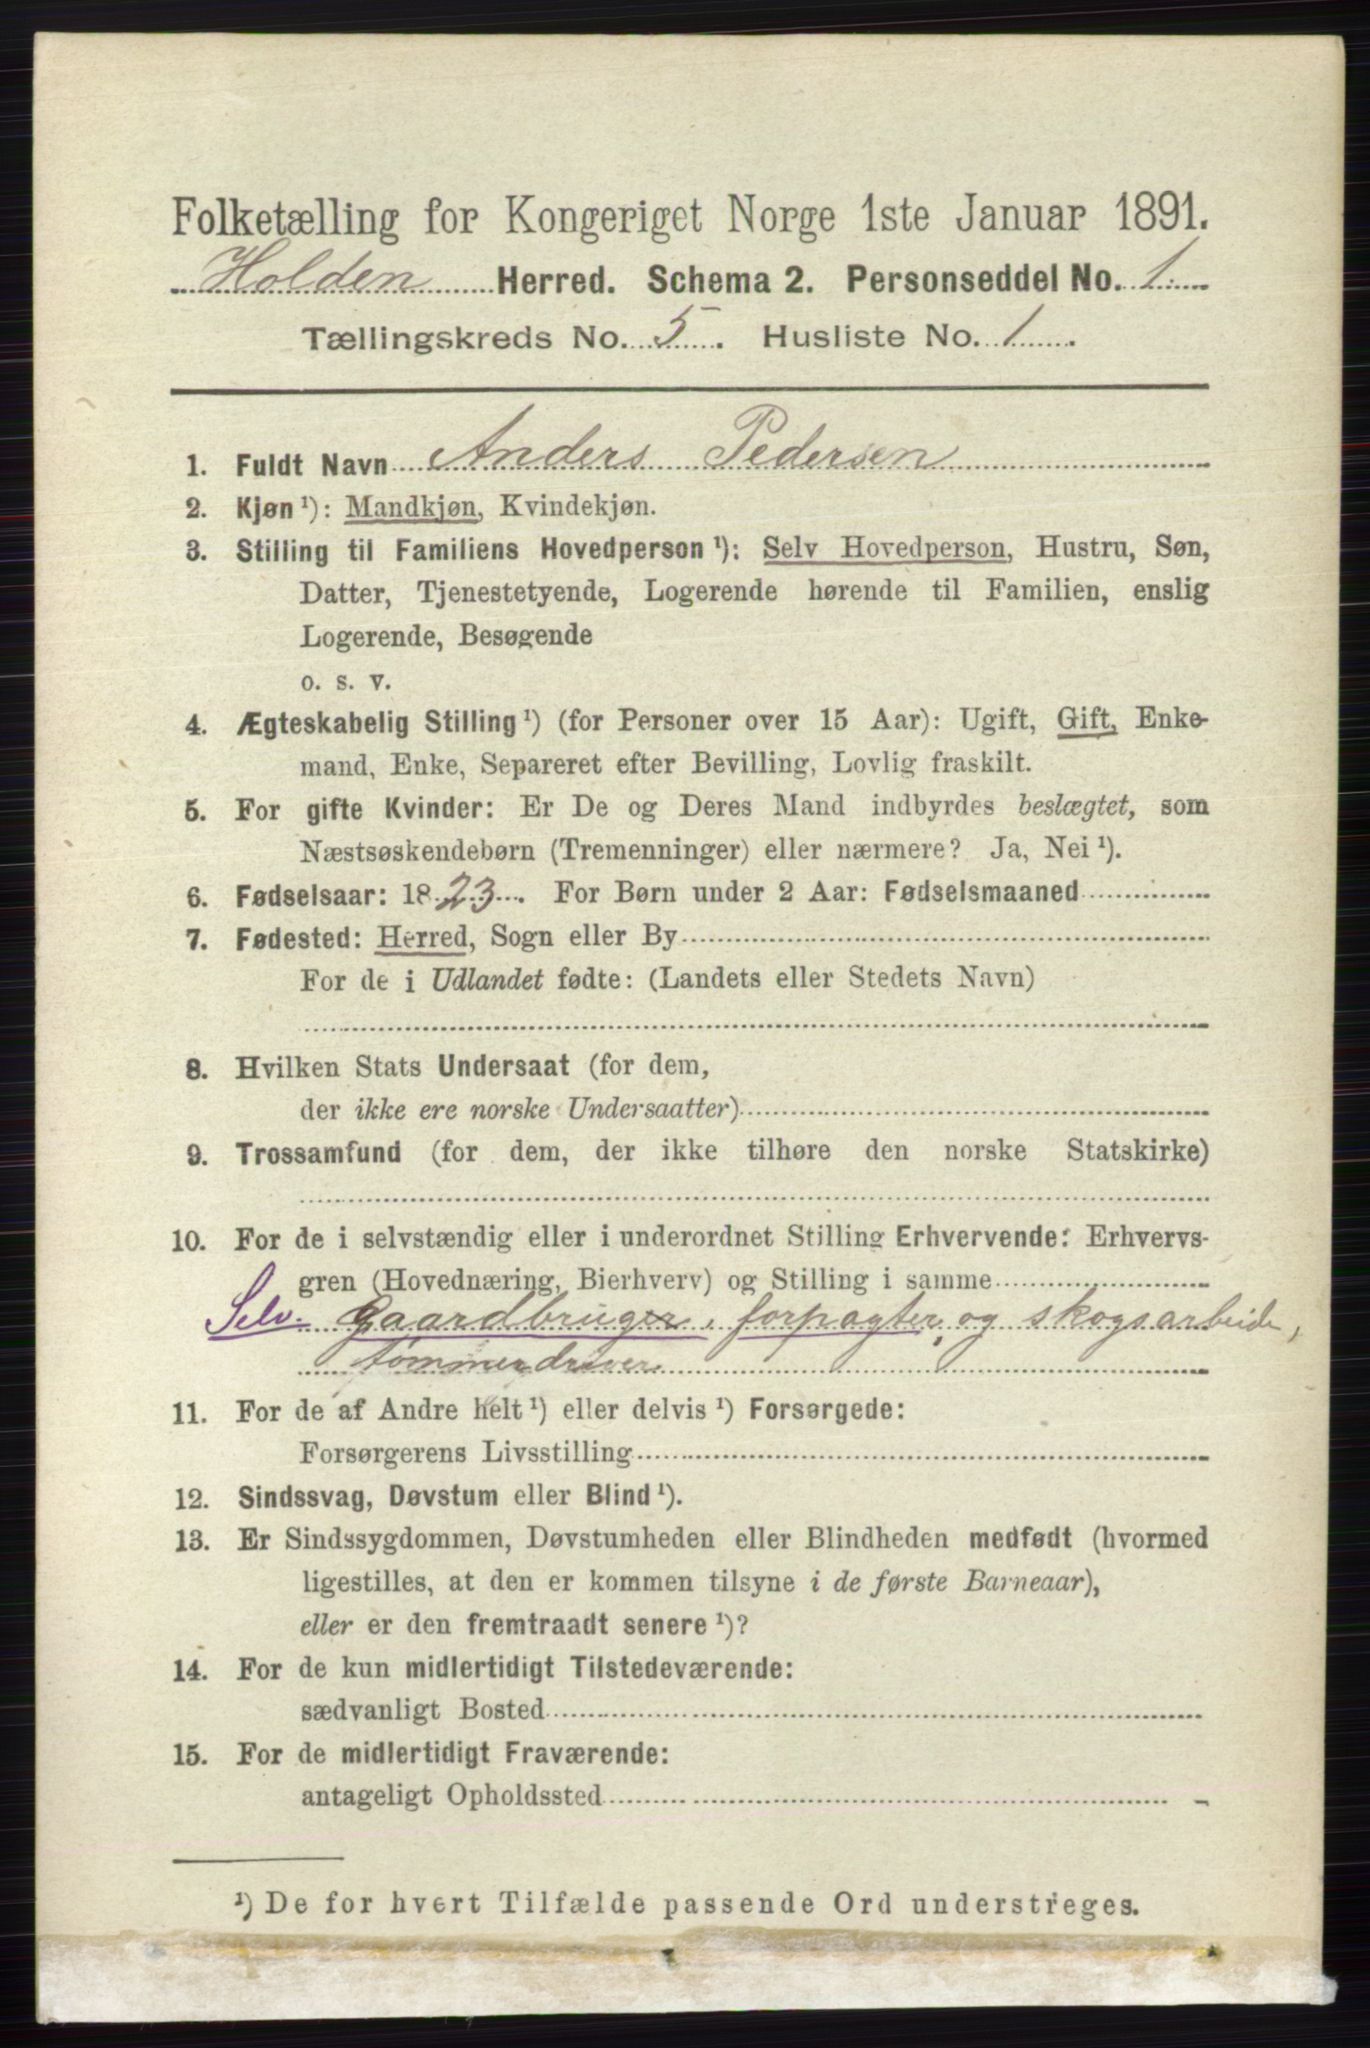 Folketælling for Kongeriget Norge 1ste Januar 1891.
Holden Herred. Schema 2. Personseddel No. 1
Tællingskreds No. 5. Husliste No. 1.
1. Fuldt Navn Anders Pedersen
2. Kjøn ¹): Mandkjøn, Kvindekjøn.
3. Stilling til Familiens Hovedperson ¹): Selv Hovedperson, Hustru, Søn,
Datter, Tjenestetyende, Logerende hørende til Familien, enslig
Logerende, Besøgende
o. s. v.
4. Ægteskabelig Stilling ¹) (for Personer over 15 Aar): Ugift, Gift, Enke-
mand, Enke, Separeret efter Bevilling, Lovlig fraskilt.
5. For gifte Kvinder: Er De og Deres Mand indbyrdes beslægtet, som
Næstsøskendebørn (Tremenninger) eller nærmere? Ja, Nei ¹).
6. Fødselsaar: 1823. For Børn under 2 Aar: Fødselsmaaned
7. Fødested: Herred, Sogn eller By
For de i Udlandet fødte: (Landets eller Stedets Navn)
8. Hvilken Stats Undersaat (for dem,
der ikke ere norske Undersaatter)
9. Trossamfund (for dem, der ikke tilhøre den norske Statskirke)
10. For de i selvstændig eller i underordnet Stilling Erhvervende: Erhvervs-
gren (Hovednæring, Bierhverv) og Stilling i samme
Selv. gaardbruger, forpagter, og skogsarbeide,
tømmerdriver
11. For de af Andre helt ¹) eller delvis ¹) Forsørgede:
Forsørgerens Livsstilling
12. Sindssvag, Døvstum eller Blind ¹).
13. Er Sindssygdommen, Døvstumheden eller Blindheden medfødt (hvormed
ligestilles, at den er kommen tilsyne i de første Barneaar),
eller er den fremtraadt senere ¹)?
14. For de kun midlertidigt Tilstedeværende:
sædvanligt Bosted
15. For de midlertidigt Fraværende:
antageligt Opholdssted
¹) De for hvert Tilfælde passende Ord understreges.